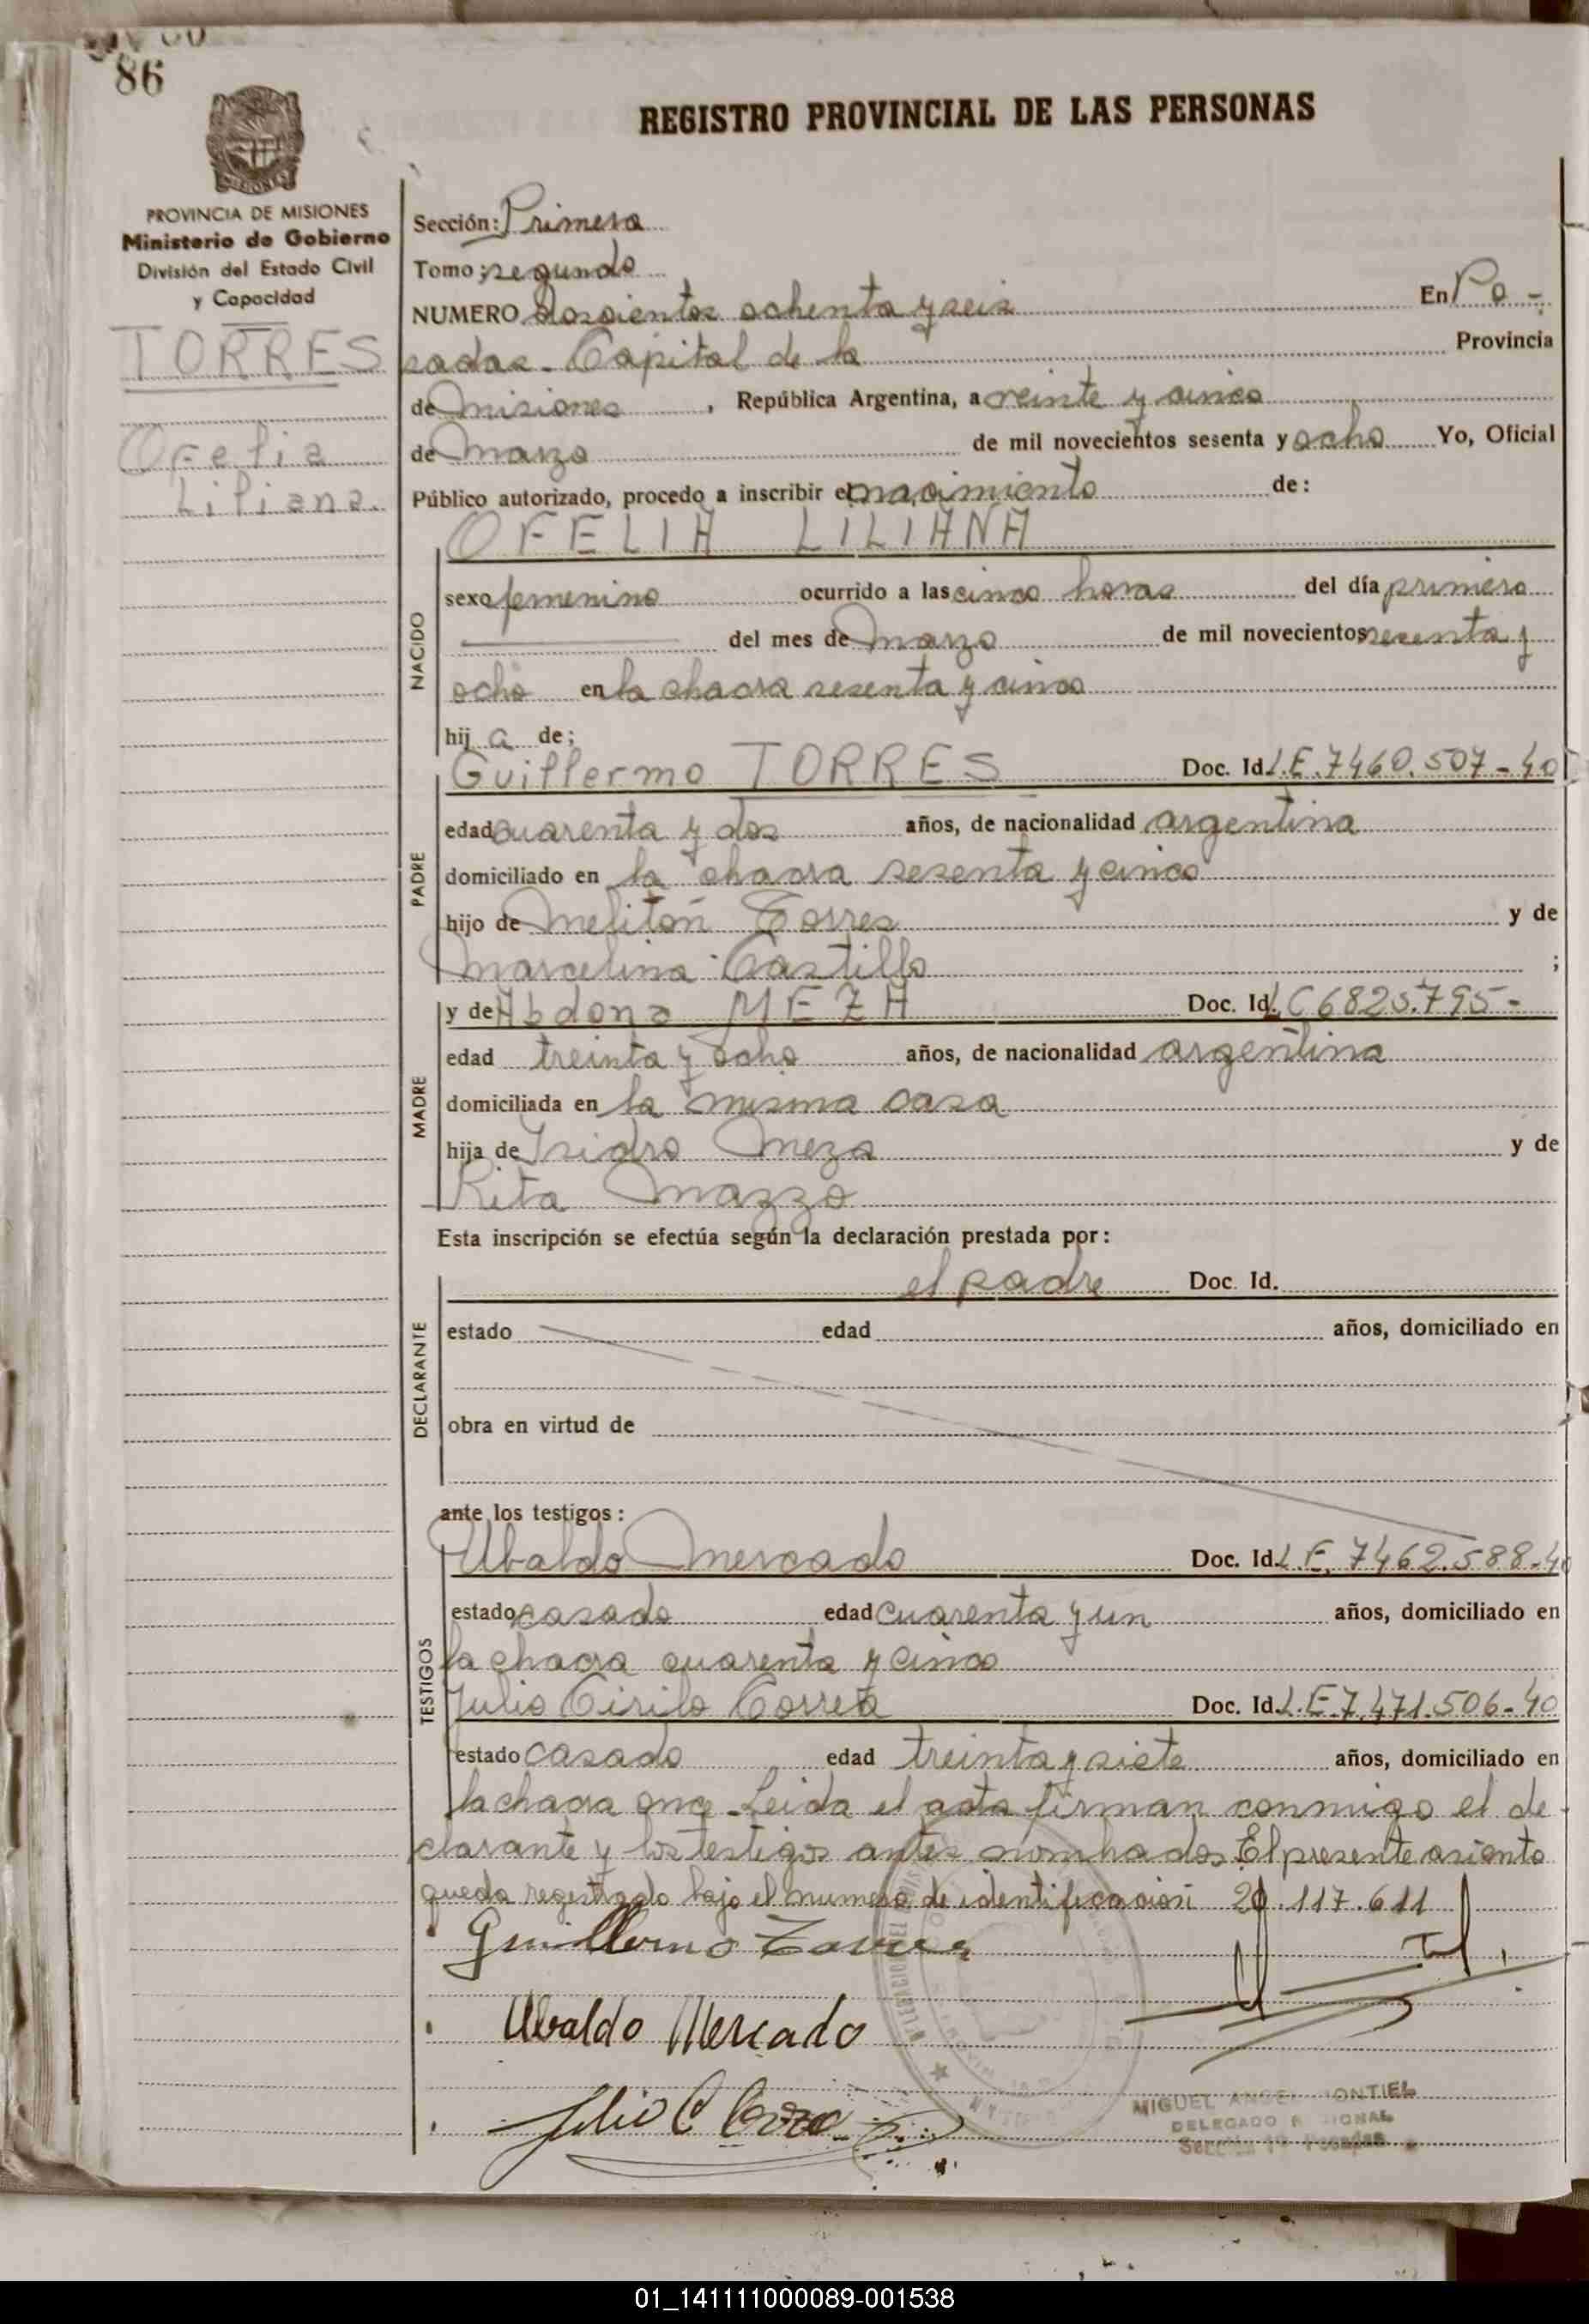 86
REGISTRO PROVINCIAL DE LAS PERSONAS
PROVINCIA DE MISIONES
Ministerio de Gobierno
División del Estado Civil
y Capacidad
TORRES
Ofelia
Liliana.
Sección: Primera
Tomo: segundo
NUMERO doscientos ochenta y seis En Po-
sadas. Capital de la Provincia
de Misiones, República Argentina, a veinte y cinco
de Marzo de mil novecientos sesenta y ocho Yo, Oficial
Público autorizado, procedo a inscribir el nacimiento de:
OFELIA LILIANA
NACIDO
sexo femenino ocurrido a las cinco horas del día primero
del mes de Marzo de mil novecientos sesenta y
ocho en la chacra sesenta y cinco
hija de;
Guillermo TORRES Doc. Id. L.E.7460.507-40
PADRE
edad cuarenta y dos años, de nacionalidad argentina
domiciliado en la chacra sesenta y cinco
hijo de Melitón Torres y de
Marcelina Castillo ;
y de Abdona MEZA Doc. Id. L.C 6825.795-
MADRE
edad treinta y ocho años, de nacionalidad argentina
domiciliada en la misma casa
hija de Isidro Meza y de
Rita Mazzo
Esta inscripción se efectúa según la declaración prestada por:
el padre Doc. Id.
DECLARANTE
estado edad años, domiciliado en
obra en virtud de
ante los testigos:
Ubaldo Mercado Doc. Id. L.E. 7462.588-40
TESTIGOS
estado casado edad cuarenta y un años, domiciliado en
la chacra cuarenta y cinco
Julio Cirilo Correa Doc. Id. L.E.7.471.506-40
estado casado edad treinta y siete años, domiciliado en
la chacra once. Leida el acta firman conmigo el de-
clarante y los testigos antes nombrados. El presente asiento
queda registrado bajo el numero de identificación 20.117.611
Guillermo Torres
Ubaldo Mercado
Julio C Correa
MIGUEL ANGEL MONTIEL
DELEGADO
01_141111000089-001538